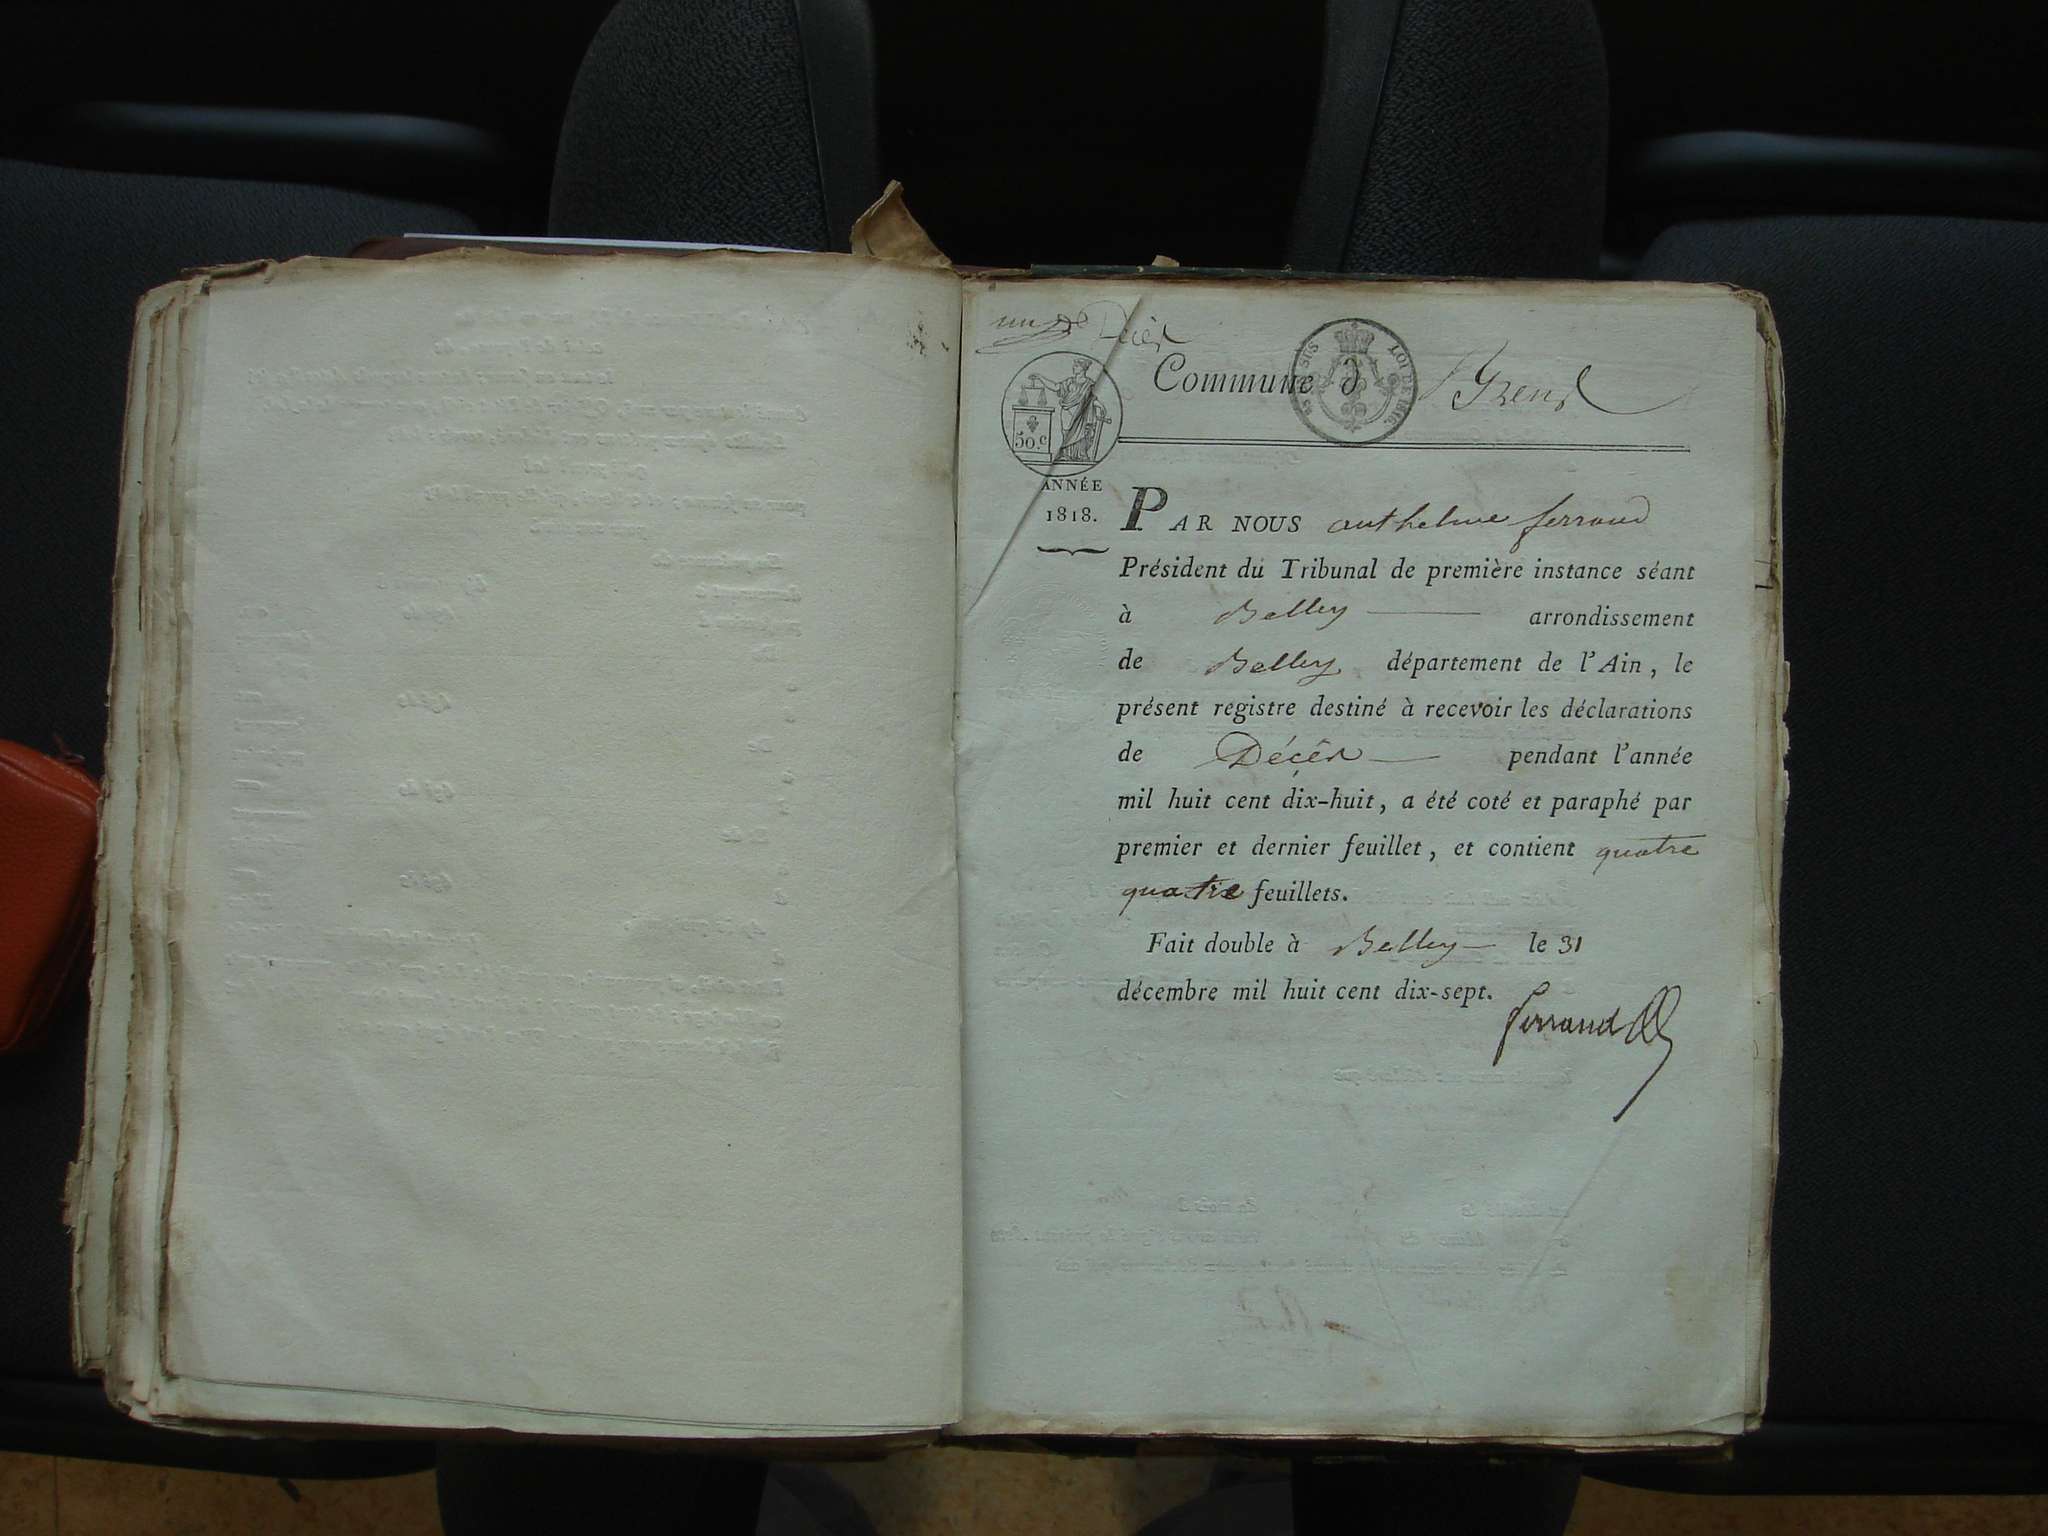 un
Commune d Yzenf
EN SUS LOI DE 1816.
50.c
ANNÉE
1818.
PAR NOUS anthelme ferrand
Président du Tribunal de première instance séant
à Belley arrondissement
de Belley département de l'Ain, le
présent registre destiné à recevoir les déclarations
de Décès pendant l'année
mil huit cent dix-huit, a été coté et paraphé par
premier et dernier feuillet, et contient quatre
quatre feuillets.
Fait double à Belley le 31
décembre mil huit cent dix-sept.
ferrand